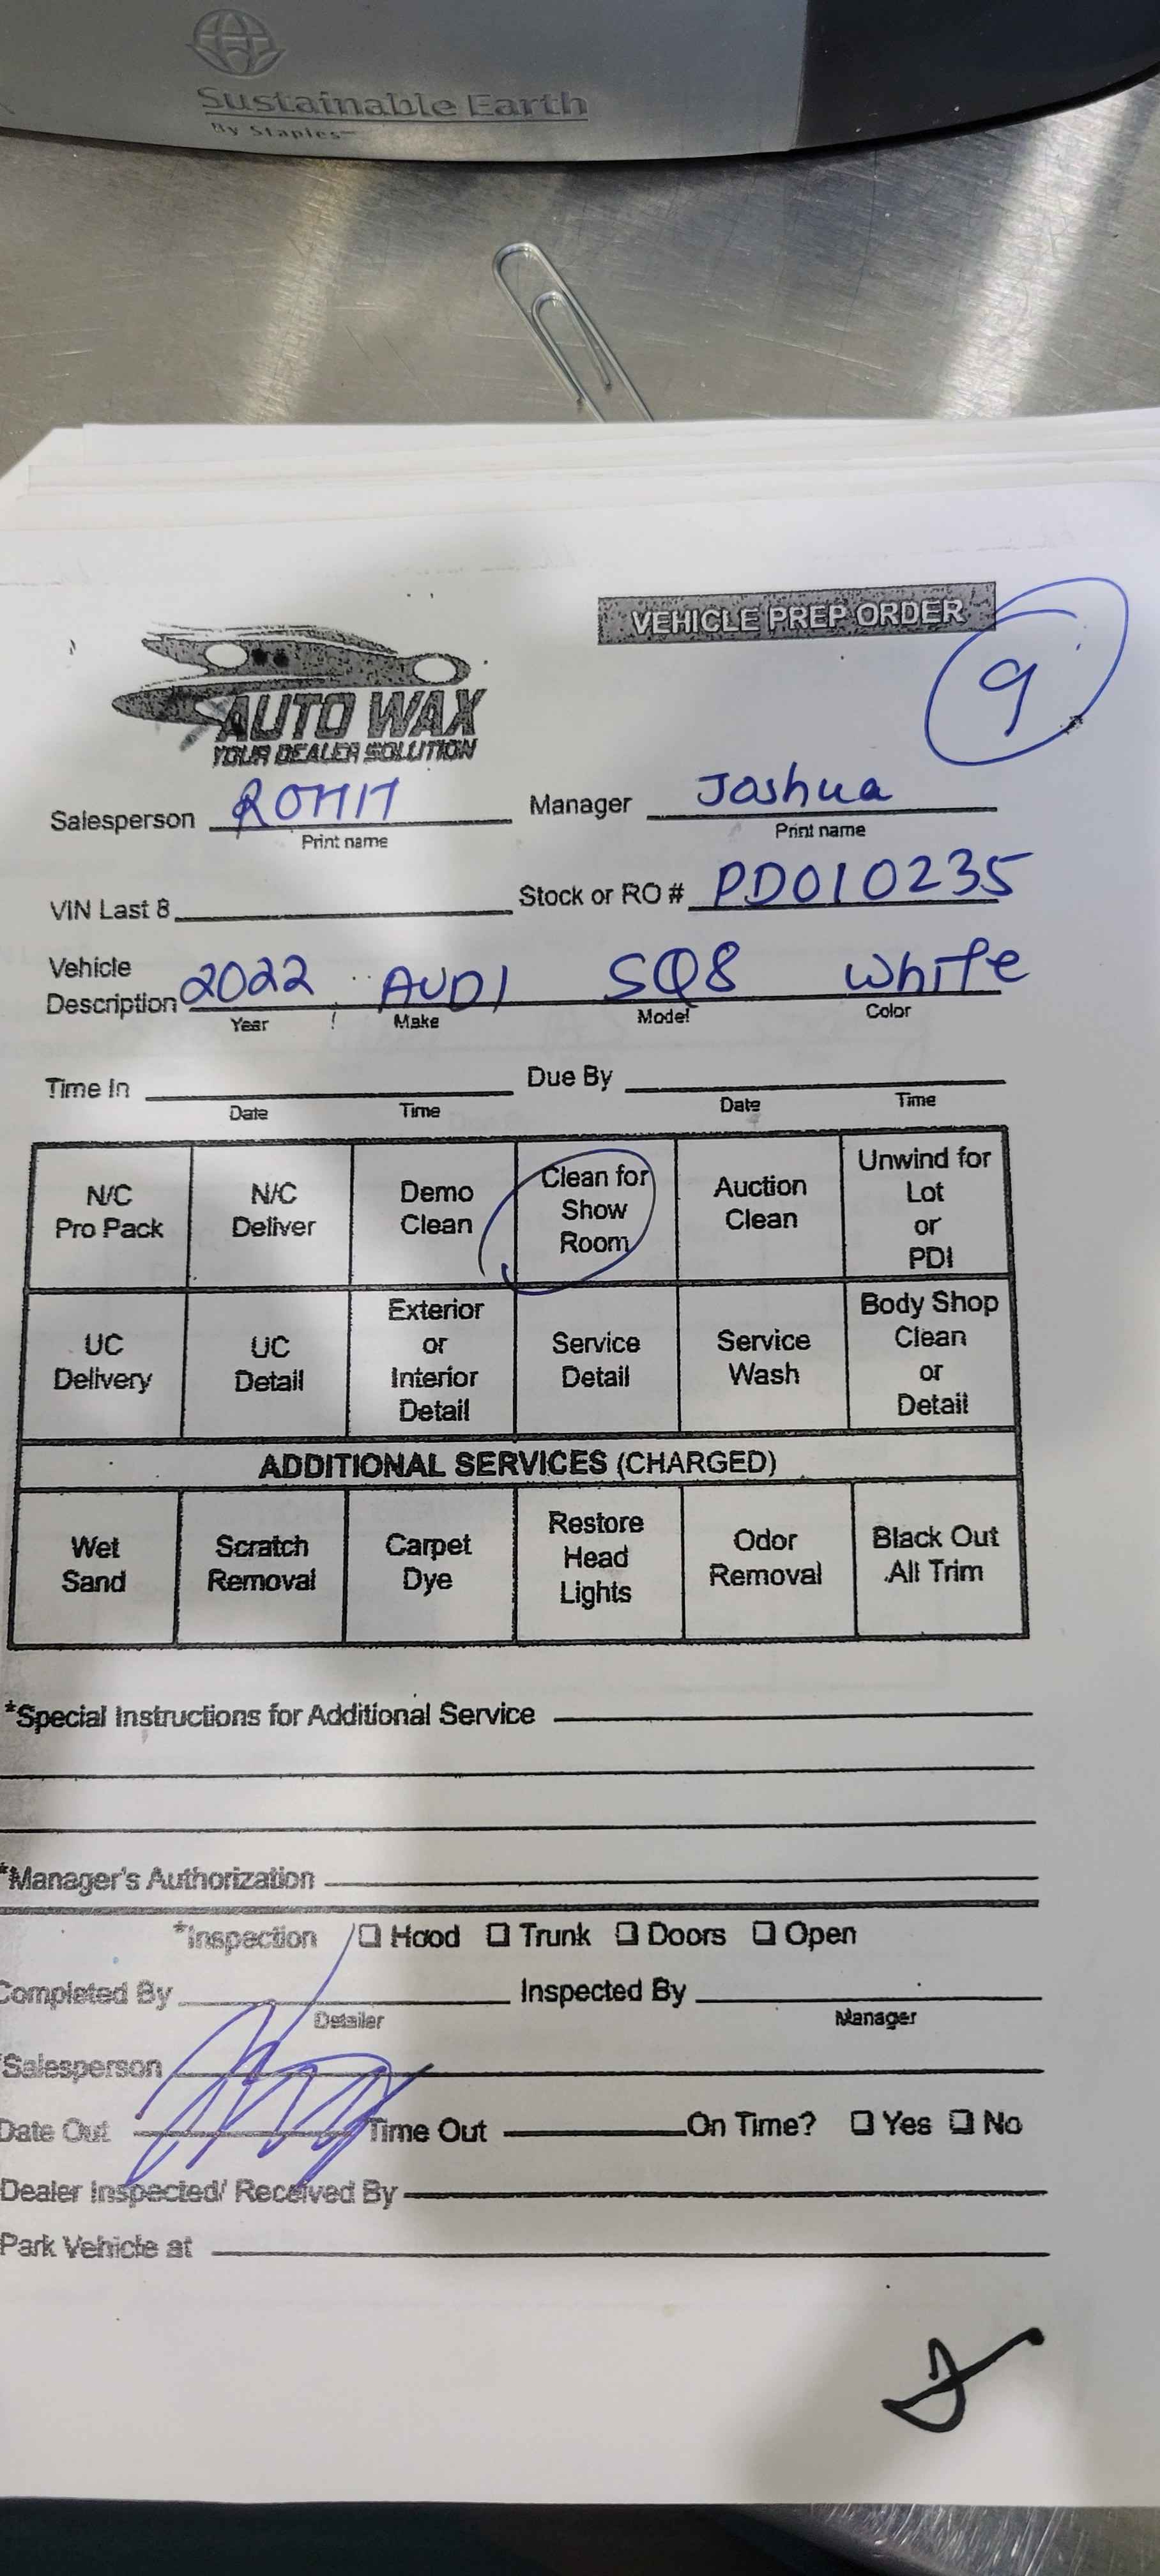 Sustainable Earth
By Staples™
VEHICLE PREP ORDER
9
AUTO WAX
YOUR DEALER SOLUTION
Salesperson ROHIT Manager Joshua
Print name Print name
VIN Last 8 Stock or RO # PD010235
Vehicle Description 2022 AUDI SQ8 White
Year Make Model Color
Time In Due By
Date Time Date Time
N/C Pro Pack N/C Deliver Demo Clean Clean for Show Room Auction Clean Unwind for Lot or PDI
UC Delivery UC Detail Exterior or Interior Detail Service Detail Service Wash Body Shop Clean or Detail
ADDITIONAL SERVICES (CHARGED)
Wet Sand Scratch Removal Carpet Dye Restore Head Lights Odor Removal Black Out All Trim
*Special Instructions for Additional Service
*Manager's Authorization
*Inspection ❑ Hood ❑ Trunk ❑ Doors ❑ Open
Completed By Inspected By
Detailer Manager
*Salesperson
Date Out Time Out On Time? ❑ Yes ❑ No
Dealer Inspected/ Received By
Park Vehicle at